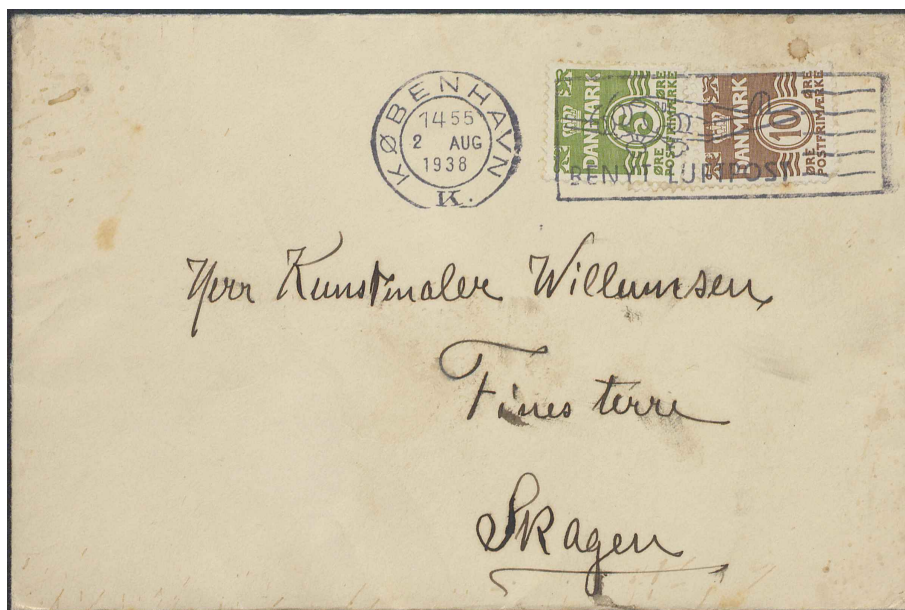 KØBENHAVN
1455
2 AUG
1938
K.
DANMARK
5
ØRE ØRE
POSTFRIMÆRKE
DANMARK
10
ØRE ØRE
POSTFRIMÆRKE
BENYT LUFTPOST
Herr Kunstmaler Willumsen,
Finis terre
Skagen